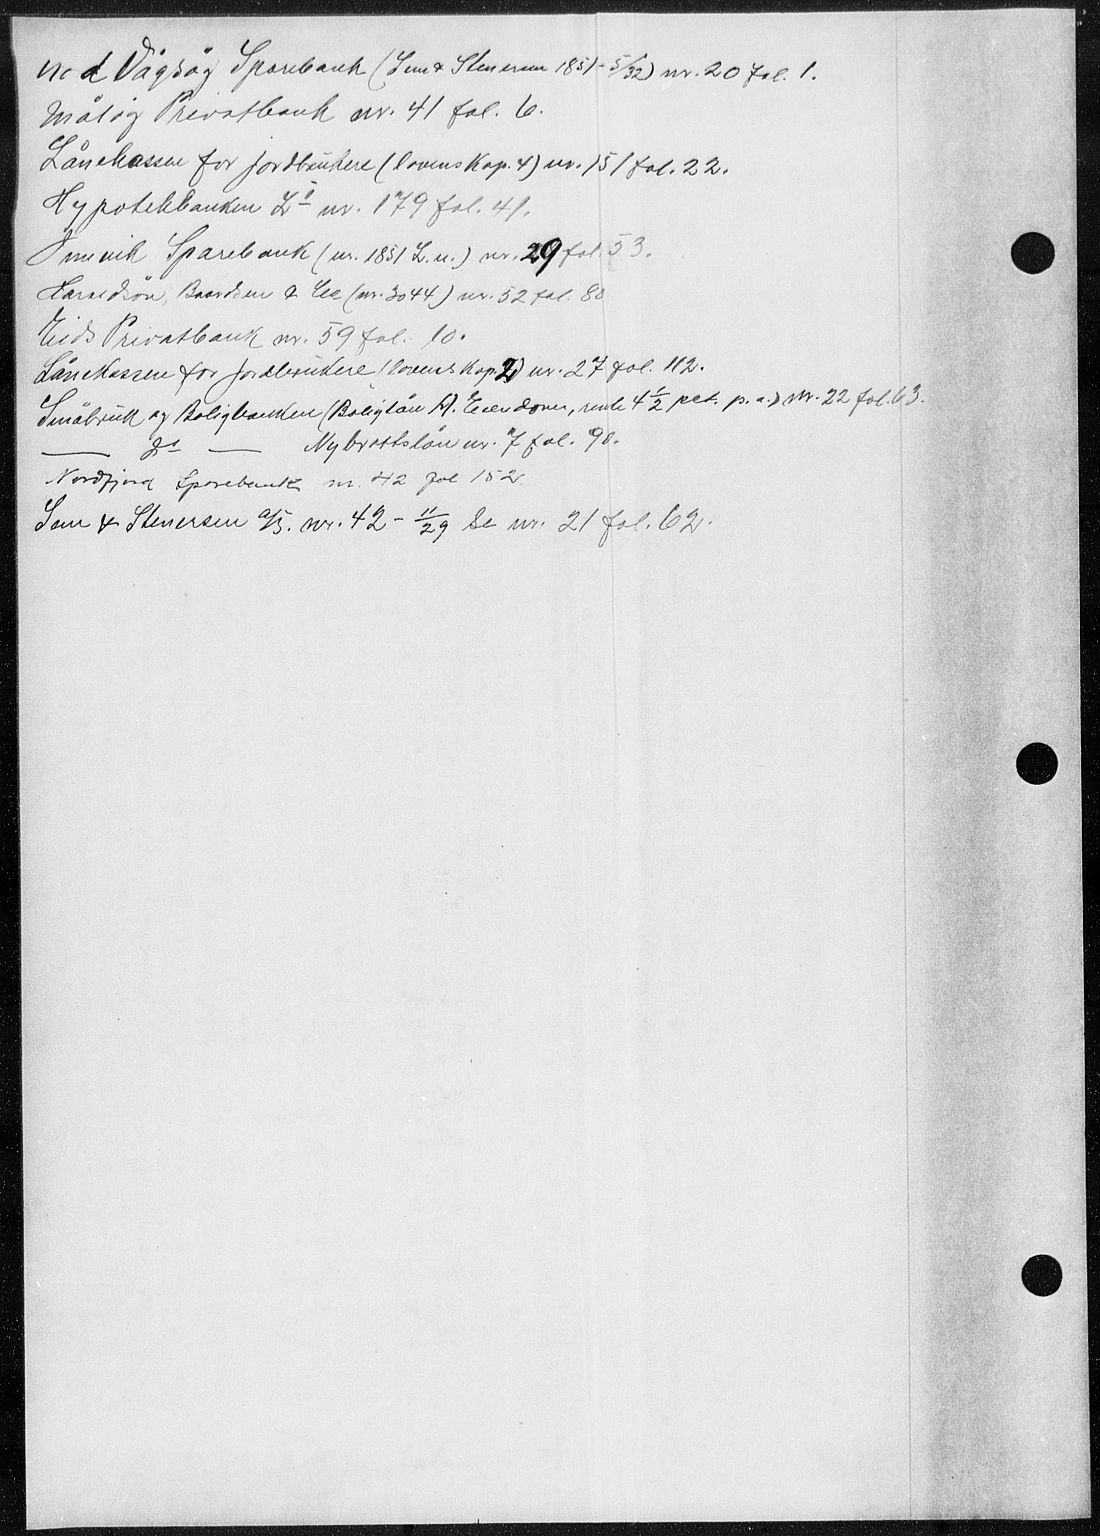 Nord Vågsøy Sparebank (Sem & Stenersen 1851 - 5/32) nr. 20 fol. 1.
Måløy Privatbank nr. 41 fol. 6.
Lånekassen for jordbrukere (lovens Kap. 4) nr. 151 fol. 22.
Hypotekbanken nr. 179 fol. 41.
Innvik Sparebank (nr. 1851 L.n.) nr. 29 fol. 53.
Haraldson, Baardsen & Co (nr. 3044) nr. 52 fol. 80
Eids Privatbank nr. 59 fol. 10.
Lånekassen for jordbrukere (lovens Kap. 2) nr. 27 fol. 112.
Småbruk og Boligbanken (Boliglån A. Eiendomer, rente 4 1/2 pct. p. a.) nr. 22 fol. 63.
— do — Nybrottslån nr. 7 fol. 90.
Nordfjord Sparebank nr. 42 fol 152
Sem & Stenersen A/S. nr. 42 - 11/29 nr. 21 fol. 62.